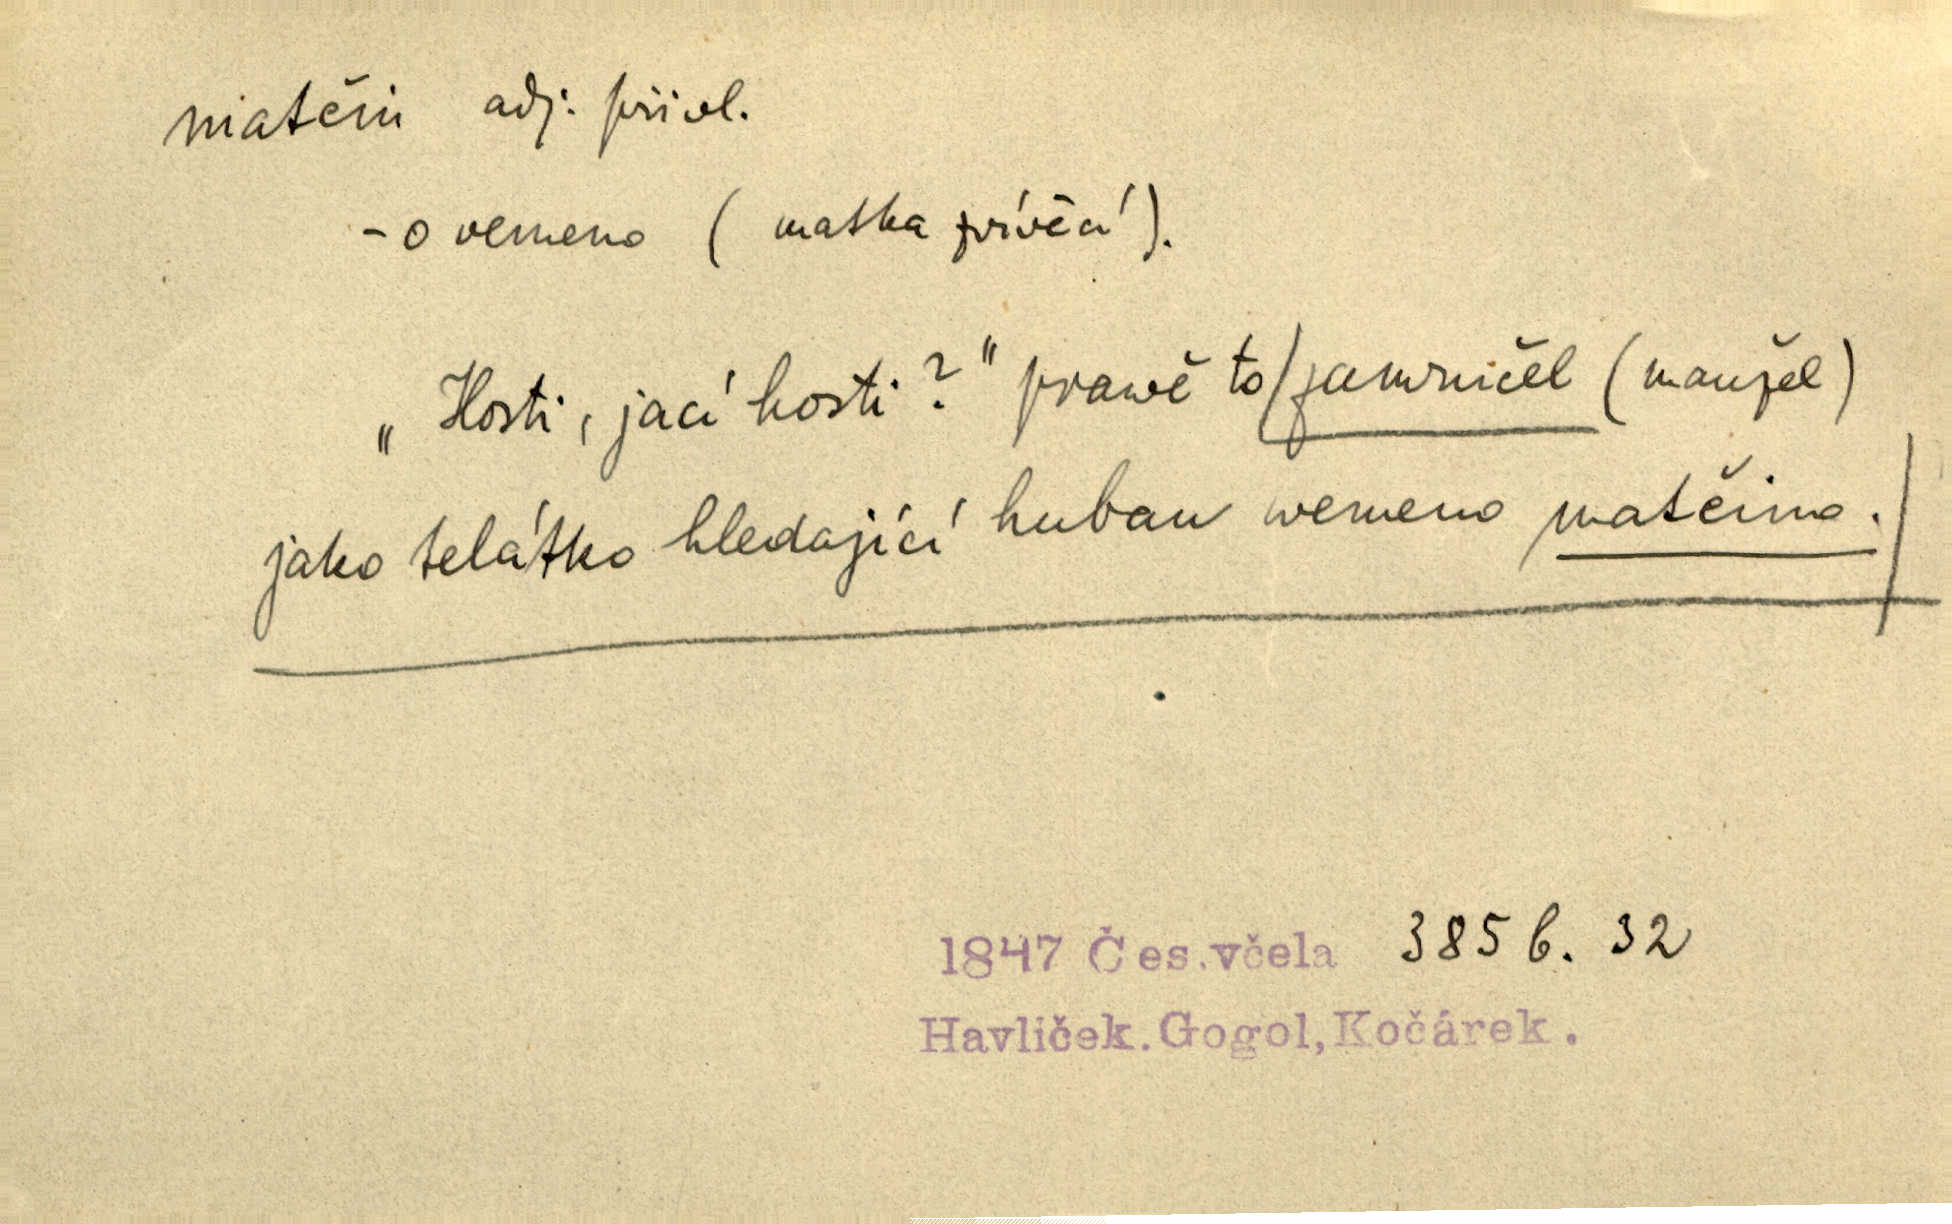 matčin adj. přivl.
-o vemeno (matka zvířecí).
„Hosti, jací hosti?" prawě to/zamručel (manžel)
jako telátko hledající hubau wemeno matčino./
1847 Čes.včela 385 b. 32
Havlíček.Gogol,Kočárek.